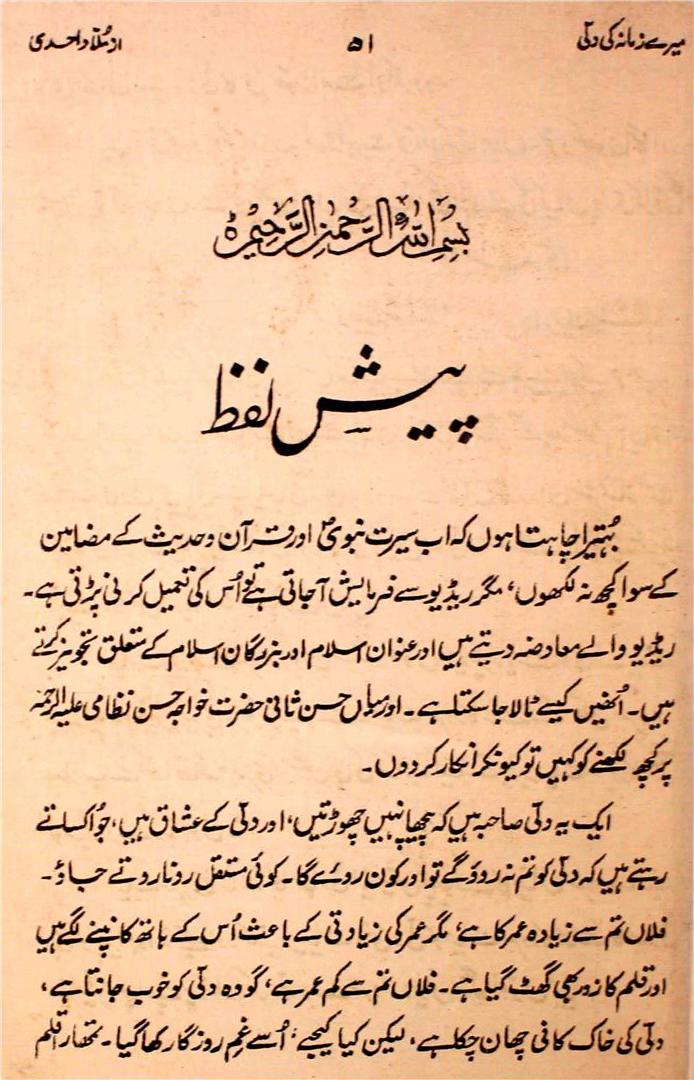 میرے زمانہ کی دلّی
۵۱
از مُلّا واحدی
بِسْمِ اللّٰہِ الرَّحْمٰنِ الرَّحِیْمِ ہ
پیشِ لفظ
بُہتیرا چاہتا ہوں کہ اب سیرت نبویؐ اور قرآن و حدیث کے مضامین
کے سوا کچھ نہ لکھوں، مگر ریڈیو سے فرمایش آجاتی ہے تو اُس کی تعمیل کرنی پڑتی ہے۔
ریڈیو والے معاوضہ دیتے ہیں اور عنوان اسلام اور بزرگان اسلام کے متعلق تجویز کرتے
ہیں۔ اُنھیں کیسے ٹالا جا سکتا ہے۔ اور میاں حسن ثانی حضرت خواجہ حسن نظامی علیہ الرحمہ
پر کچھ لکھنے کو کہیں تو کیونکر انکار کردوں۔
ایک یہ دلّی صاحبہ ہیں کہ پیچھا نہیں چھوڑتیں، اور دلّی کے عشاق ہیں، جو اُکساتے
رہتے ہیں کہ دلّی کو تم نہ روؤگے تو اور کون روئے گا۔ کوئی مستقل رونا روتے جاؤ۔
فلاں تم سے زیادہ عمر کا ہے، مگر عمر کی زیادتی کے باعث اُس کے ہاتھ کانپنے لگے ہیں
اور قلم کا زور بھی گھٹ گیا ہے۔ فلاں تم سے کم عمر ہے، گو وہ دلّی کو خوب جانتا ہے،
دلّی کی خاک کافی چھان چکا ہے، لیکن کیا کیجیے، اُسے غمِ روزگار کھا گیا۔ تمھارا قلم